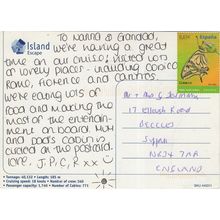 Island
Escape
To Nanna & Grandad,
we're having a great
time on air cruise! Visited lots
of lovely places - including Corsica
Rome, Florence and Cannes.
We're eating lots of
food and making the
most of the entertain-
ment on board. Mum
and Dad's cabin is
circled on the postcard
Love J, P, C, R xx
España
17
Eccles
ENGLAND
• Tonnage: 40,132 • Length: 185 m
• Cruising speed: 18 knots • Number of crew: 540
• Passenger capacity: 1,740 • Number of Cabins: 771